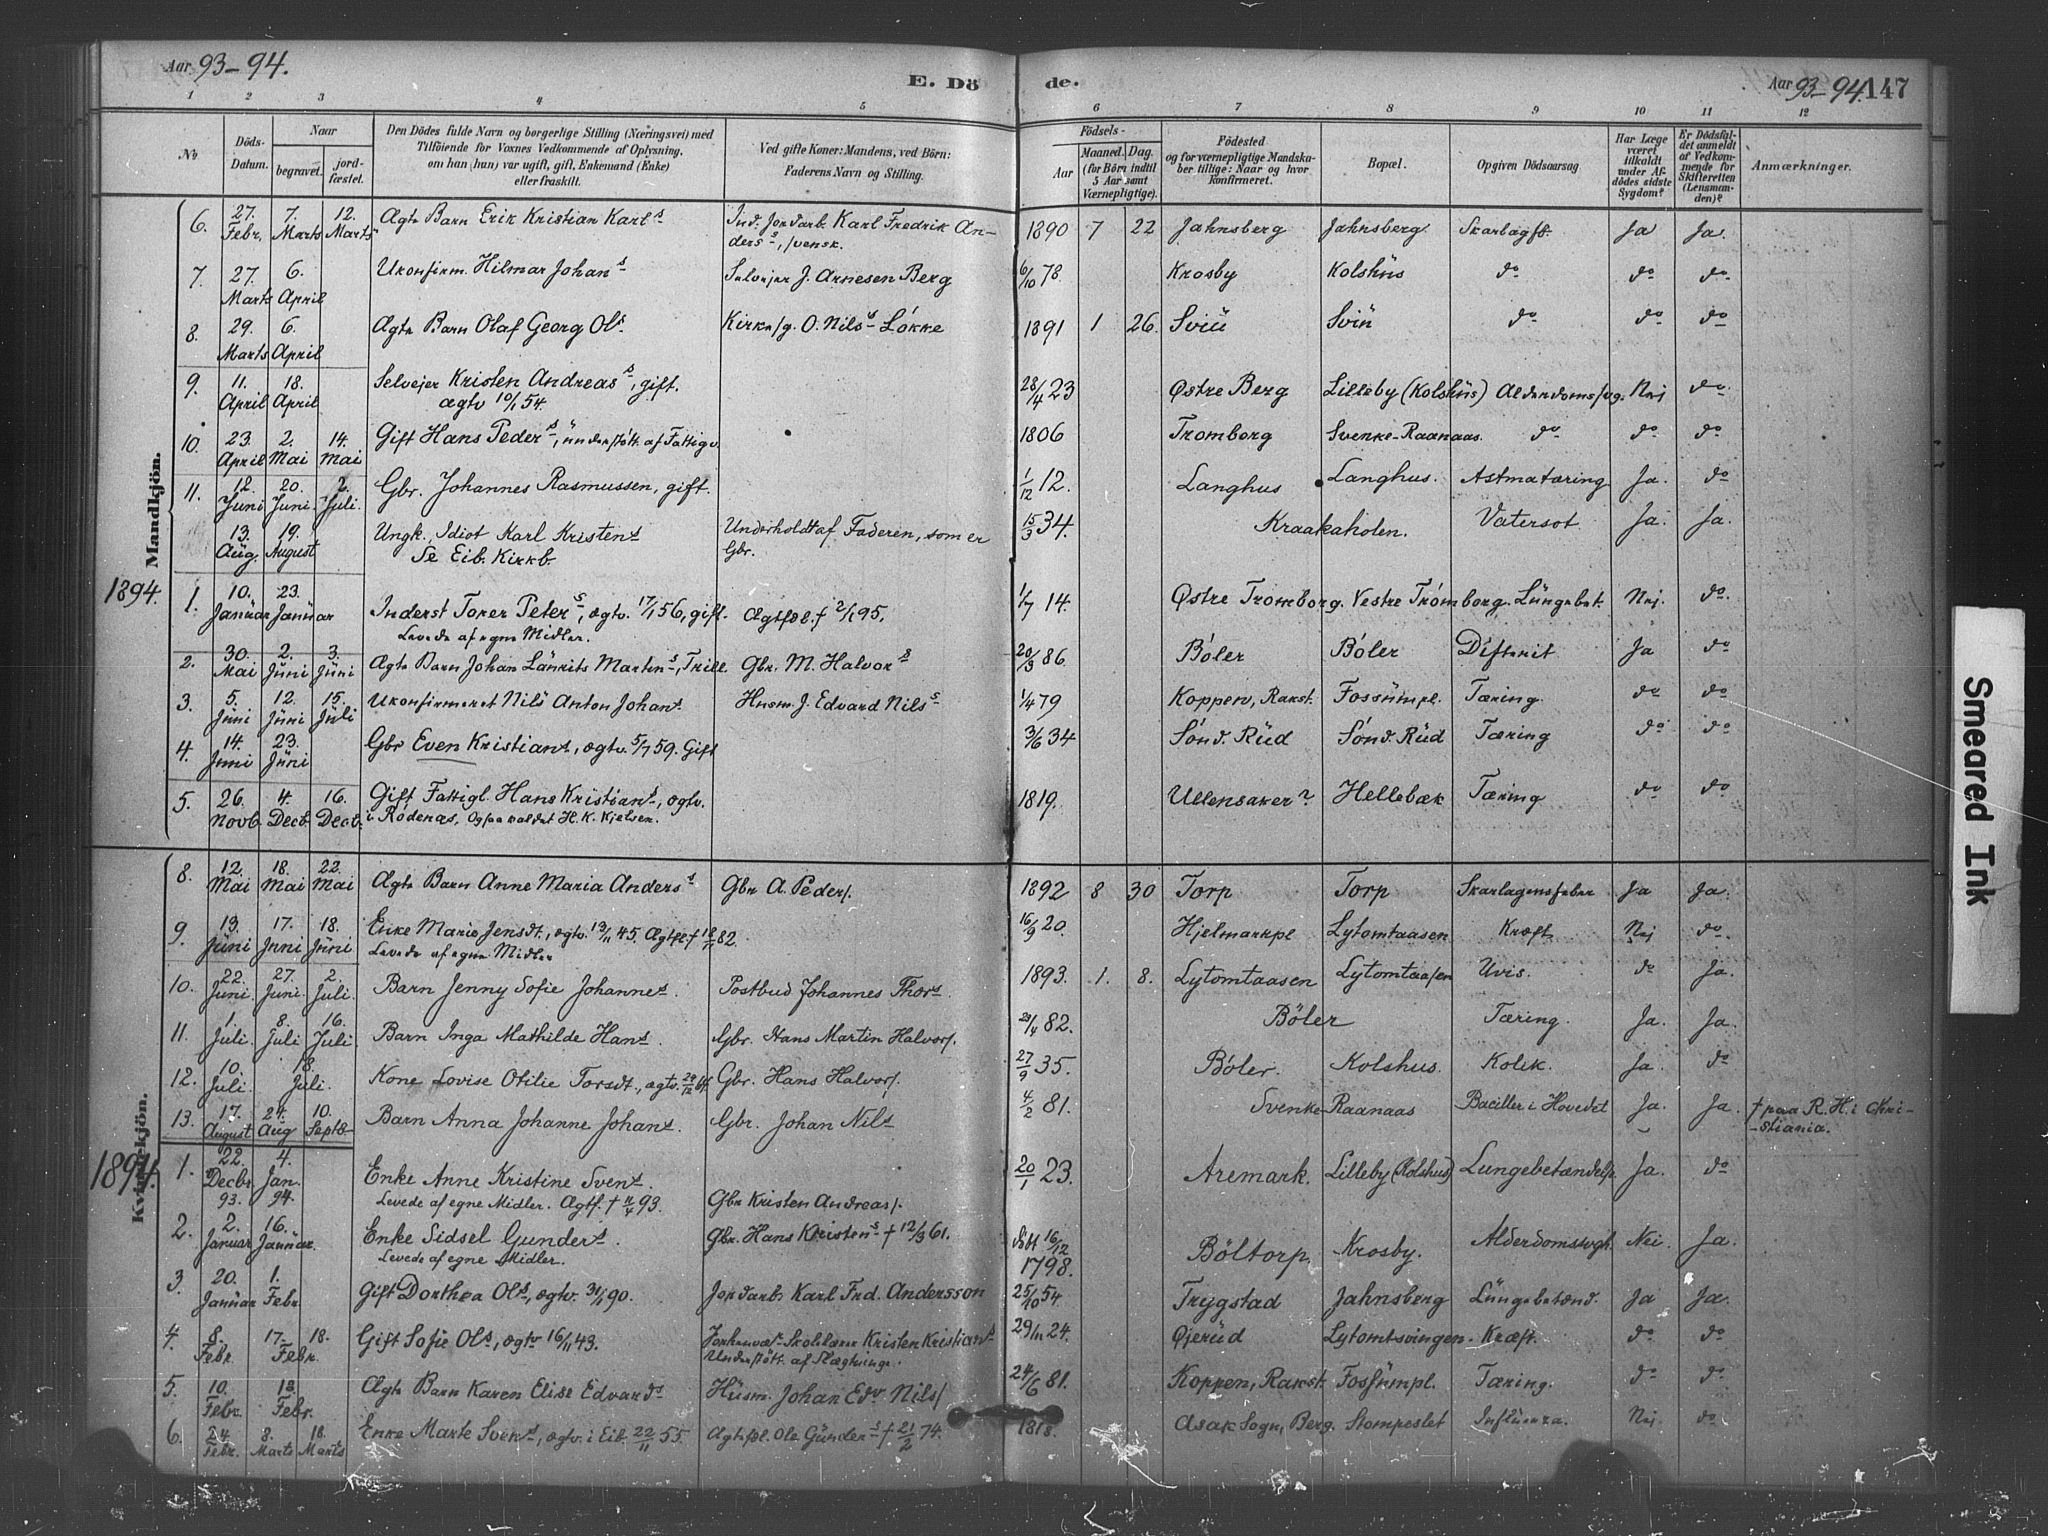 Aar 93–94.
E. Dö
de.
Aar 93–94. 147
1 2 3 4 5 6 7 8 9 10 11 12
No
Döds-Datum.
Naar
begravet.
jord-fæstet.
Den Dödes fulde Navn og borgerlige Stilling (Næringsvei) med
Tilföiende for Voxnes Vedkommende af Oplysning,
om han (hun) var ugift, gift, Enkemand (Enke)
eller fraskilt.
Ved gifte Koner: Mandens, ved Börn:
Faderens Navn og Stilling.
Födsels-
Aar
Maaned. Dag.
(for Börn indtil
5 Aar samt
Værnepligtige).
Födested
og for værnepligtige Mandska-
ber tillige: Naar og hvor
konfirmeret.
Bopæl.
Opgiven Dödsaarsag.
Har Læge
været
tilkaldt
under Af-
dödes sidste
Sygdom?
Er Dödsfal-
det anmeldt
af Vedkom-
mende for
Skifteretten
(Lensman-
den)?
Anmærkninger.
Mandkjön.
6. 27. Febr. 7. Marts 12. Marts Ægte Barn Erik Kristian Karls Ind. Jordarb. Karl Fredrik An-
ders s, svensk. 1890 7 22 Jahnsberg Jahnsberg. Skarlagsf. Ja Ja.
7. 27. Marts 6. April Ukonfirm. Hilmar Johans Selvejer J. Arnesen Berg 6/10 78. Krosby Kolshüs do do do
8. 29. Marts 6. April Ægte Barn Olaf Georg Ols. Kirkesg. O. Nils s Løkke 1891 1 26. Sviü Sviü do do do
9. 11. April 18. April Selvejer Kristen Andreas s, gift.
ægtv 10/1 54. 28/4 23 Østre Berg Lilleby (Kolshüs) Alderdomssvag. Nej do.
10. 23. April 2. Mai 14. Mai Gift Hans Peder s, ünderstött. af Fattigv. 1806 Tromborg Svenke-Raanaas. do do do
11. 12. Juni 20. Juni. 2. Juli. Gbr. Johannes Rasmussen, gift. 1/12 12. Langhus Langhus. Astmatæring Ja. do
13. Aüg. 19. August Ungk., Idiot Karl Kristens
Se Eib. Kirkb. Underholdt af Faderen, som er
Gbr. 15/3 34. Kraakaholen. Vatersot. Ja. Ja.
1894.
1. 10. Januar 23. Januar Inderst Torer Peter s, ægtv. 17/1 56, gift.
Levede af egne Midler. Ægtfæl. † 2/1 95. 1/7 14. Østre Tromborg. Vestre Tromborg. Lüngebet. Nej. do.
2. 30. Mai 2. Jüni 3. Jüni Ægte Barn Johan Laurits Martins, Trill. Gbr. M. Halvor s 20/3 86. Böler Böler Difterit Ja do
3. 5. Jüni 12. Jüni 15. Juli Ukonfirmeret Nils Anton Johans. Husm. J. Edvard Nils s 1/4 79 Koppen, Rakst. Fossümpl. Tæring do do
4. 14. Juni 23. Jüni Gbr Even Kristians, ægtv. 5/7 59. Gift 3/6 34 Sönd. Rüd Sönd. Rüd Tæring do do
5. 26. Novb. 4. Decb. 16. Decb. Gift Fattigl. Hans Kristians, ægtv.
i Rödenæs. Ogsaa kaldet H. K. Kjelsen. 1819. Ullensaker? Hellebæk Tæring do do
Kvindekjön.
8. 12. Mai 18. Mai 22. Mai Ægte Barn Anne Maria Anders s Gbr A. Peders. 1892 8 30 Torp Torp Skarlagensfeber Ja Ja.
9. 13. Jüni 17. Juni 18. Jüni Enke Marie Jensdt., ægtv. 13/11 45. Ægtfl. † 82.
Levede af egne Midler 16/9 20. Hjelmarkpl Lytomtaasen Kræft. Nej do.
10. 22. Juni 27. Juni 2. Juli. Barn Jenny Sofie Johannes. Postbud Johannes Thors. 1893. 1. 8. Lytomtaasen Lytomtaasen Uvis. do Ja.
11. 1. Juli. 8. Juli 16. Juli. Barn Inga Mathilde Hans. Gbr. Hans Martin Halvors. 82. Böler Tæring. Ja. Ja.
12. 10. Juli. 18. Juli. Kone Lovise Otilie Torsdt., ægtv. Gbr. Hans Halvors. 27/9 35. Böler. Kolshus. Kolik. Ja. do
13. 17. August 24. Aüg 10. Septb. Barn Anna Johanne Johans. Gbr. Johan Nils. 4/2 81. Svenke-Raanaas Baciller i Hovedet Ja. Ja. † paa R. H. i Chri-
stiania.
1894.
1. 22. Decbr. 93. 4. Jan. 94. Enke Anne Kristine Svens.
Levede af egne Midler. Ægtf. † 11/4 93. Gbr Kristen Andreas. 20/1 23. Aremark. Lilleby (Kolshus) Lungebetændelse Ja. do
2. 2. Januar 16. Januar. Enke Sidsel Gunders.
Levede af egne Midler. Gbr. Hans Kristen s † 12/3 61. Döbt 16/12
1798. Böltorp Krosby. Alderdomssvgh. Nei. Ja.
3. 20. Januar 1. Febr. Gift Dorthea Ols, ægtv. 31/1 90. Jordarb. Karl Frd. Andersson 25/10 54. Trygstad Jahnsberg Lüngebetænd. Ja Ja.
4. 8. Febr. 17. 18. Febr. Gift Sofie Ols, ægtv 16/11 43. Forhenvæ. Skolelærer Kristen Kristians
Understött. af Slægtninge. 29/11 24. Øjerüd Lytomtsvingen. Kræft. do do
5. 10. Febr. 18. Febr. Ægte Barn Karen Elise Edvards Hüsm. Johan Edv. Nils. 24/6 81. Koppen, Rakst. Fossümpl. Tæring. do do
6. 24. Febr. 8. Marts 18. Marts Enke Marte Svens, ægtv. i Eib. 22/11 55. Ægtsfæl. Ole Günder s † 21/2 74. 1818. Asak Sogn, Berg. Stompeslet Influenza. Nej do
Smeared Ink